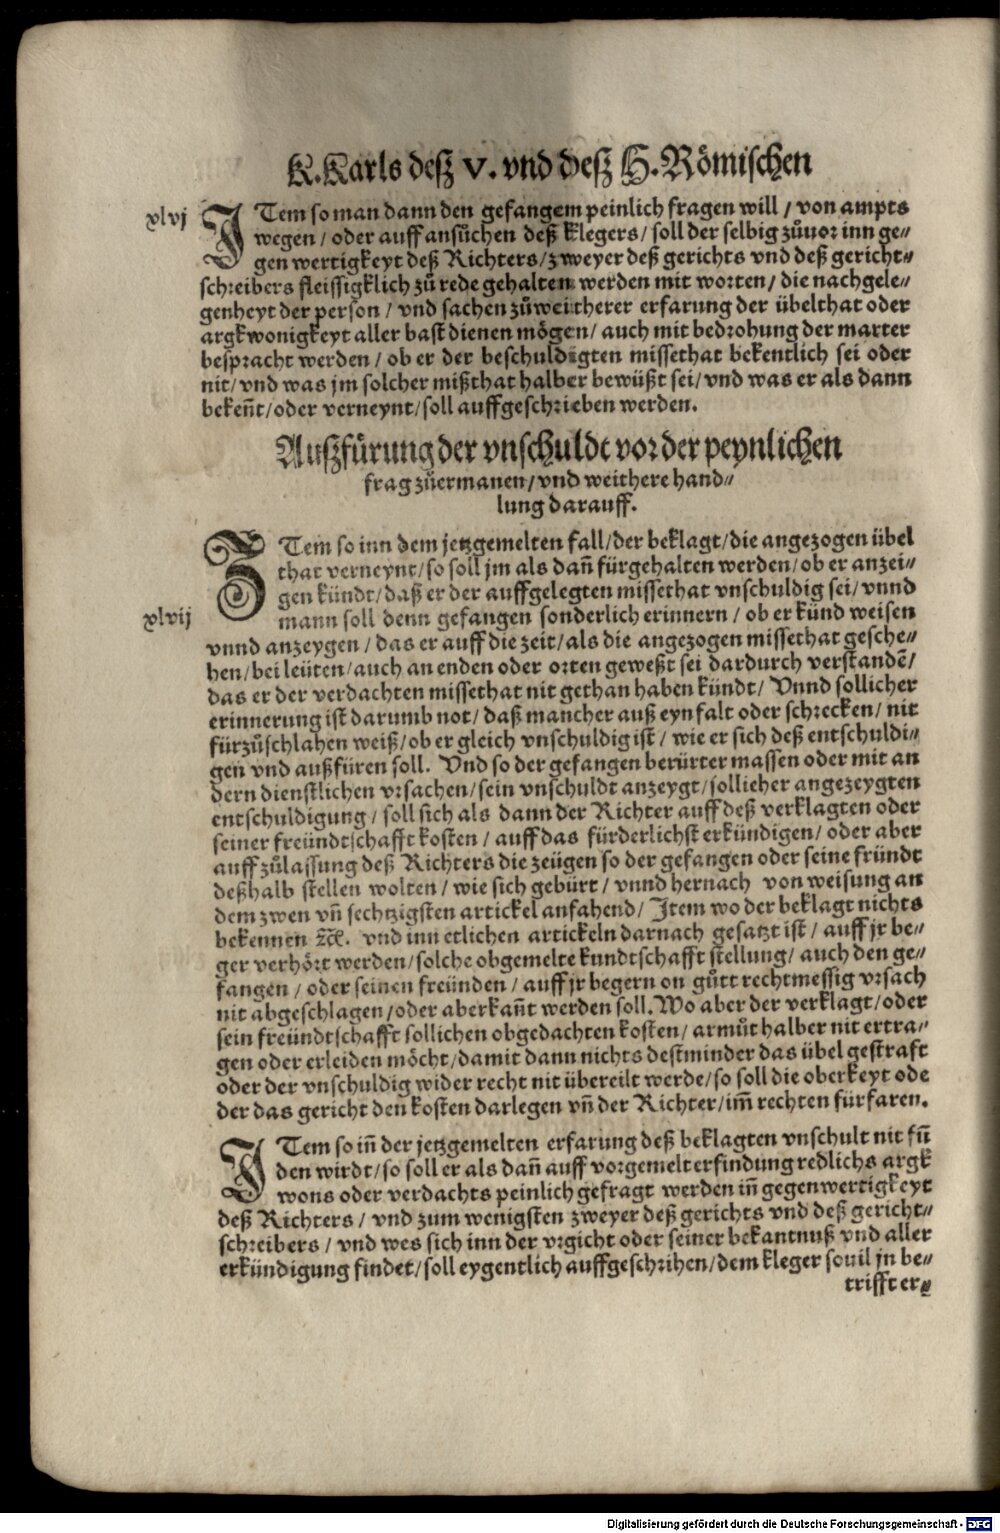 K. Karls deß V. vnd deß H. Römischen
xlvj
ITem so man dann den gefangem peinlich fragen will / von ampts
wegen / oder auff ansůchen deß klegers / soll der selbig zůuor inn ge⸗
gen wertigkeyt deß Richters / zweyer deß gerichts vnd deß gericht⸗
schreibers fleissigklich zů rede gehalten werden mit worten / die nachgele⸗
genheyt der person / vnd sachen zů weitherer erfarung der übelthat oder
argkwonigkeyt aller bast dienen mögen / auch mit bedrohung der marter
bespracht werden / ob er der beschuldigten missethat bekentlich sei oder
nit / vnd was jm solcher mißthat halber bewüßt sei / vnd was er als dann
bekeñt / oder verneynt / soll auffgeschrieben werden.
Außfürung der vnschuldt vor der peynlichen
frag zůermanen / vnd weithere hand⸗
lung darauff.
xlvij
ITem so inn dem jetzgemelten fall / der beklagt / die angezogen übel
that verneynt / so soll jm als dañ fürgehalten werden / ob er anzei⸗
gen kündt / daß er der auffgelegten missethat vnschuldig sei / vnnd
mann soll denn gefangen sonderlich erinnern / ob er künd weisen
vnnd anzeygen / das er auff die zeit / als die angezogen missethat gesche⸗
hen / bei leüten / auch an enden oder orten geweßt sei dardurch verstandẽ /
das er der verdachten missethat nit gethan haben kündt / Vnnd sollicher
erinnerung ist darumb not / daß mancher auß eynfalt oder schrecken / nit
fürzůschlahen weiß / ob er gleich vnschuldig ist / wie er sich deß entschuldi⸗
gen vnd außfüren soll. Vnd so der gefangen berürter massen oder mit an
dern dienstlichen vrsachen / sein vnschuldt anzeygt / sollicher angezeygten
entschuldigung / soll sich als dann der Richter auff deß verklagten oder
seiner freündtschafft kosten / auff das fürderlichst erkündigen / oder aber
auff zůlassung deß Richters die zeügen so der gefangen oder seine fründt
deßhalb stellen wolten / wie sich gebürt / vnnd hernach von weisung an
dem zwen vñ sechtzigsten artickel anfahend / Item wo der beklagt nichts
bekennen ꝛc̃. vnd inn etlichen artickeln darnach gesatzt ist / auff jr be⸗
ger verhört werden / solche obgemelte kundtschafft stellung / auch den ge⸗
fangen / oder seinen freünden / auff jr begern on gůtt rechtmessig vrsach
nit abgeschlagen / oder aberkañt werden soll. Wo aber der verklagt / oder
sein freündtschafft sollichen obgedachten kosten / armůt halber nit ertra⸗
gen oder erleiden möcht / damit dann nichts destminder das übel gestraft
oder der vnschuldig wider recht nit übereilt werde / so soll die oberkeyt ode
der das gericht den kosten darlegen vñ der Richter / im̃ rechten fürfaren.
ITem so iñ der jetzgemelten erfarung deß beklagten vnschult nit fũ
den wirdt / so soll er als dañ auff vorgemelt erfindung redlichs argk
wons oder verdachts peinlich gefragt werden iñ gegenwertigkeyt
deß Richters / vnd zum wenigsten zweyer deß gerichts vnd deß gericht⸗
schreibers / vnd wes sich inn der vrgicht oder seiner bekantnuß vnd aller
erkündigung findet / soll eygentlich auffgeschrihen / dem kleger souil jn be⸗
trifft er⸗
Digitalisierung gefördert durch die Deutsche Forschungsgemeinschaft - DFG